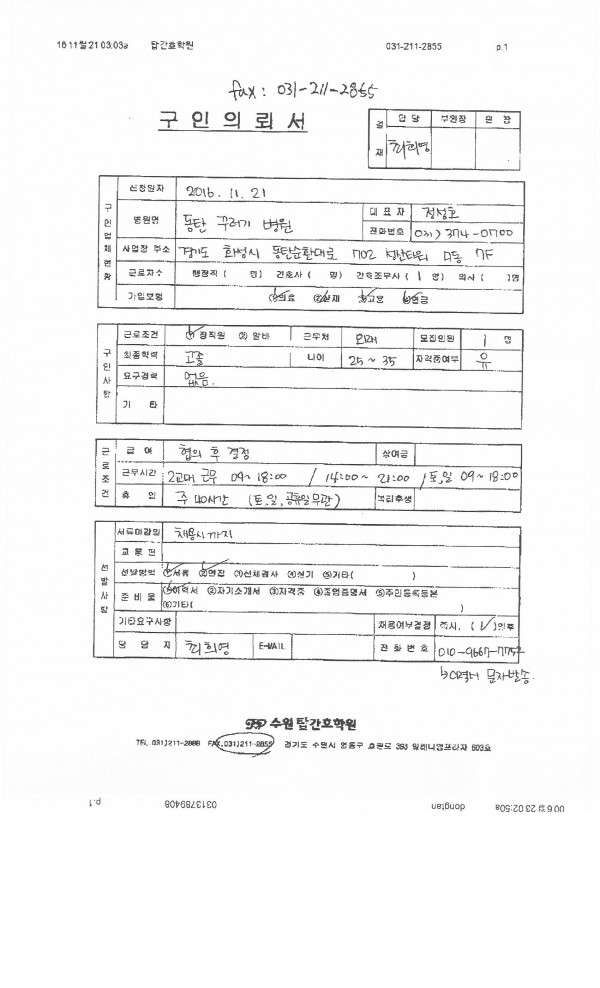 16 11월 21 03:03a 탑간호학원 031-211-2855 p.1
fax : 031-211-2855
구인의뢰서
결재 담당 부원장 원장
최희영
구인업체현황
신청일자 2016. 11. 21
병원명 동탄 꾸러기 병원 대표자 정성호
전화번호 031) 374-0700
사업장 주소 경기도 화성시 동탄순환대로 702 7F
근로자수 행정직 ( 명) 간호사 ( 명) 간호조무사 ( 1 명) 의사 ( )명
가입보험 ①의료 ②산재 ③고용 ④연금
구인사항
근로조건 ① 정직원 ② 알바 근무처 외래 모집인원 1 명
최종학력 고졸 나이 25 ~ 35 자격증여부 유
요구경력 없음.
기 타
근로조건
급 여 협의 후 결정 상여금
근무시간 2교대 근무 09~18:00 / 14:00~21:00 / 토,일 09~18:00
휴 인 주 40시간 (토,일,공휴일 무관) 복리후생
선발사항
서류마감일 채용시까지
교통편
선발방법 ①서류 ②면접 ③신체검사 ④실기 ⑤기타( )
준비물 ①이력서 ②자기소개서 ③자격증 ④졸업증명서 ⑤주민등록등본
⑥기타( )
기타요구사항 채용여부결정 즉시. ( √ )인후
담 당 자 최희영 E-MAIL 전화번호 010-9667-7752
이력서 문자발송.
수원 탑간호학원
TEL. 031)211-2888 FAX. 031)211-2855 경기도 수원시 영통구 효원로 393 밀레니엄프라자 603호
p.1 0313789408 dongtan